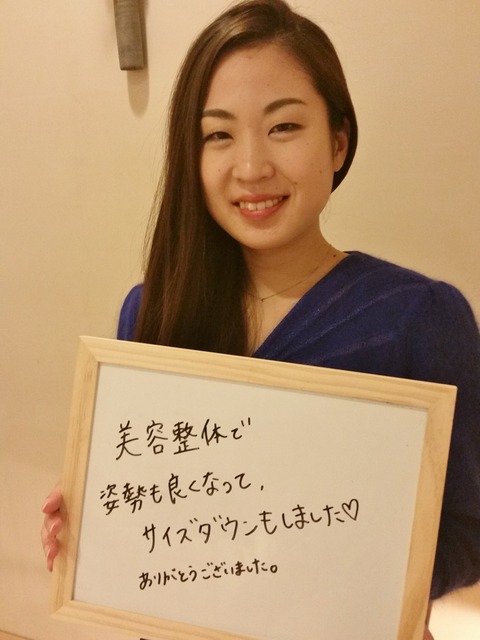 美容整体で
姿勢も良くなって、
サイズダウンもしました♡
ありがとうございました。